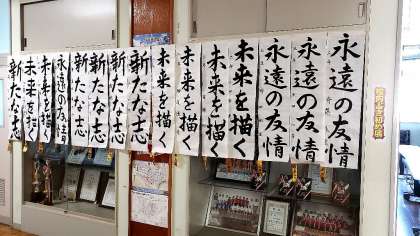 永遠の友情
永遠の友情
永遠の友情
未来を描く
未来を描く
未来を描く
未来を描く
新たな志
新たな志
新たな志
永遠の友情
永遠の友情
未来を描く
未来を描く
新たな志